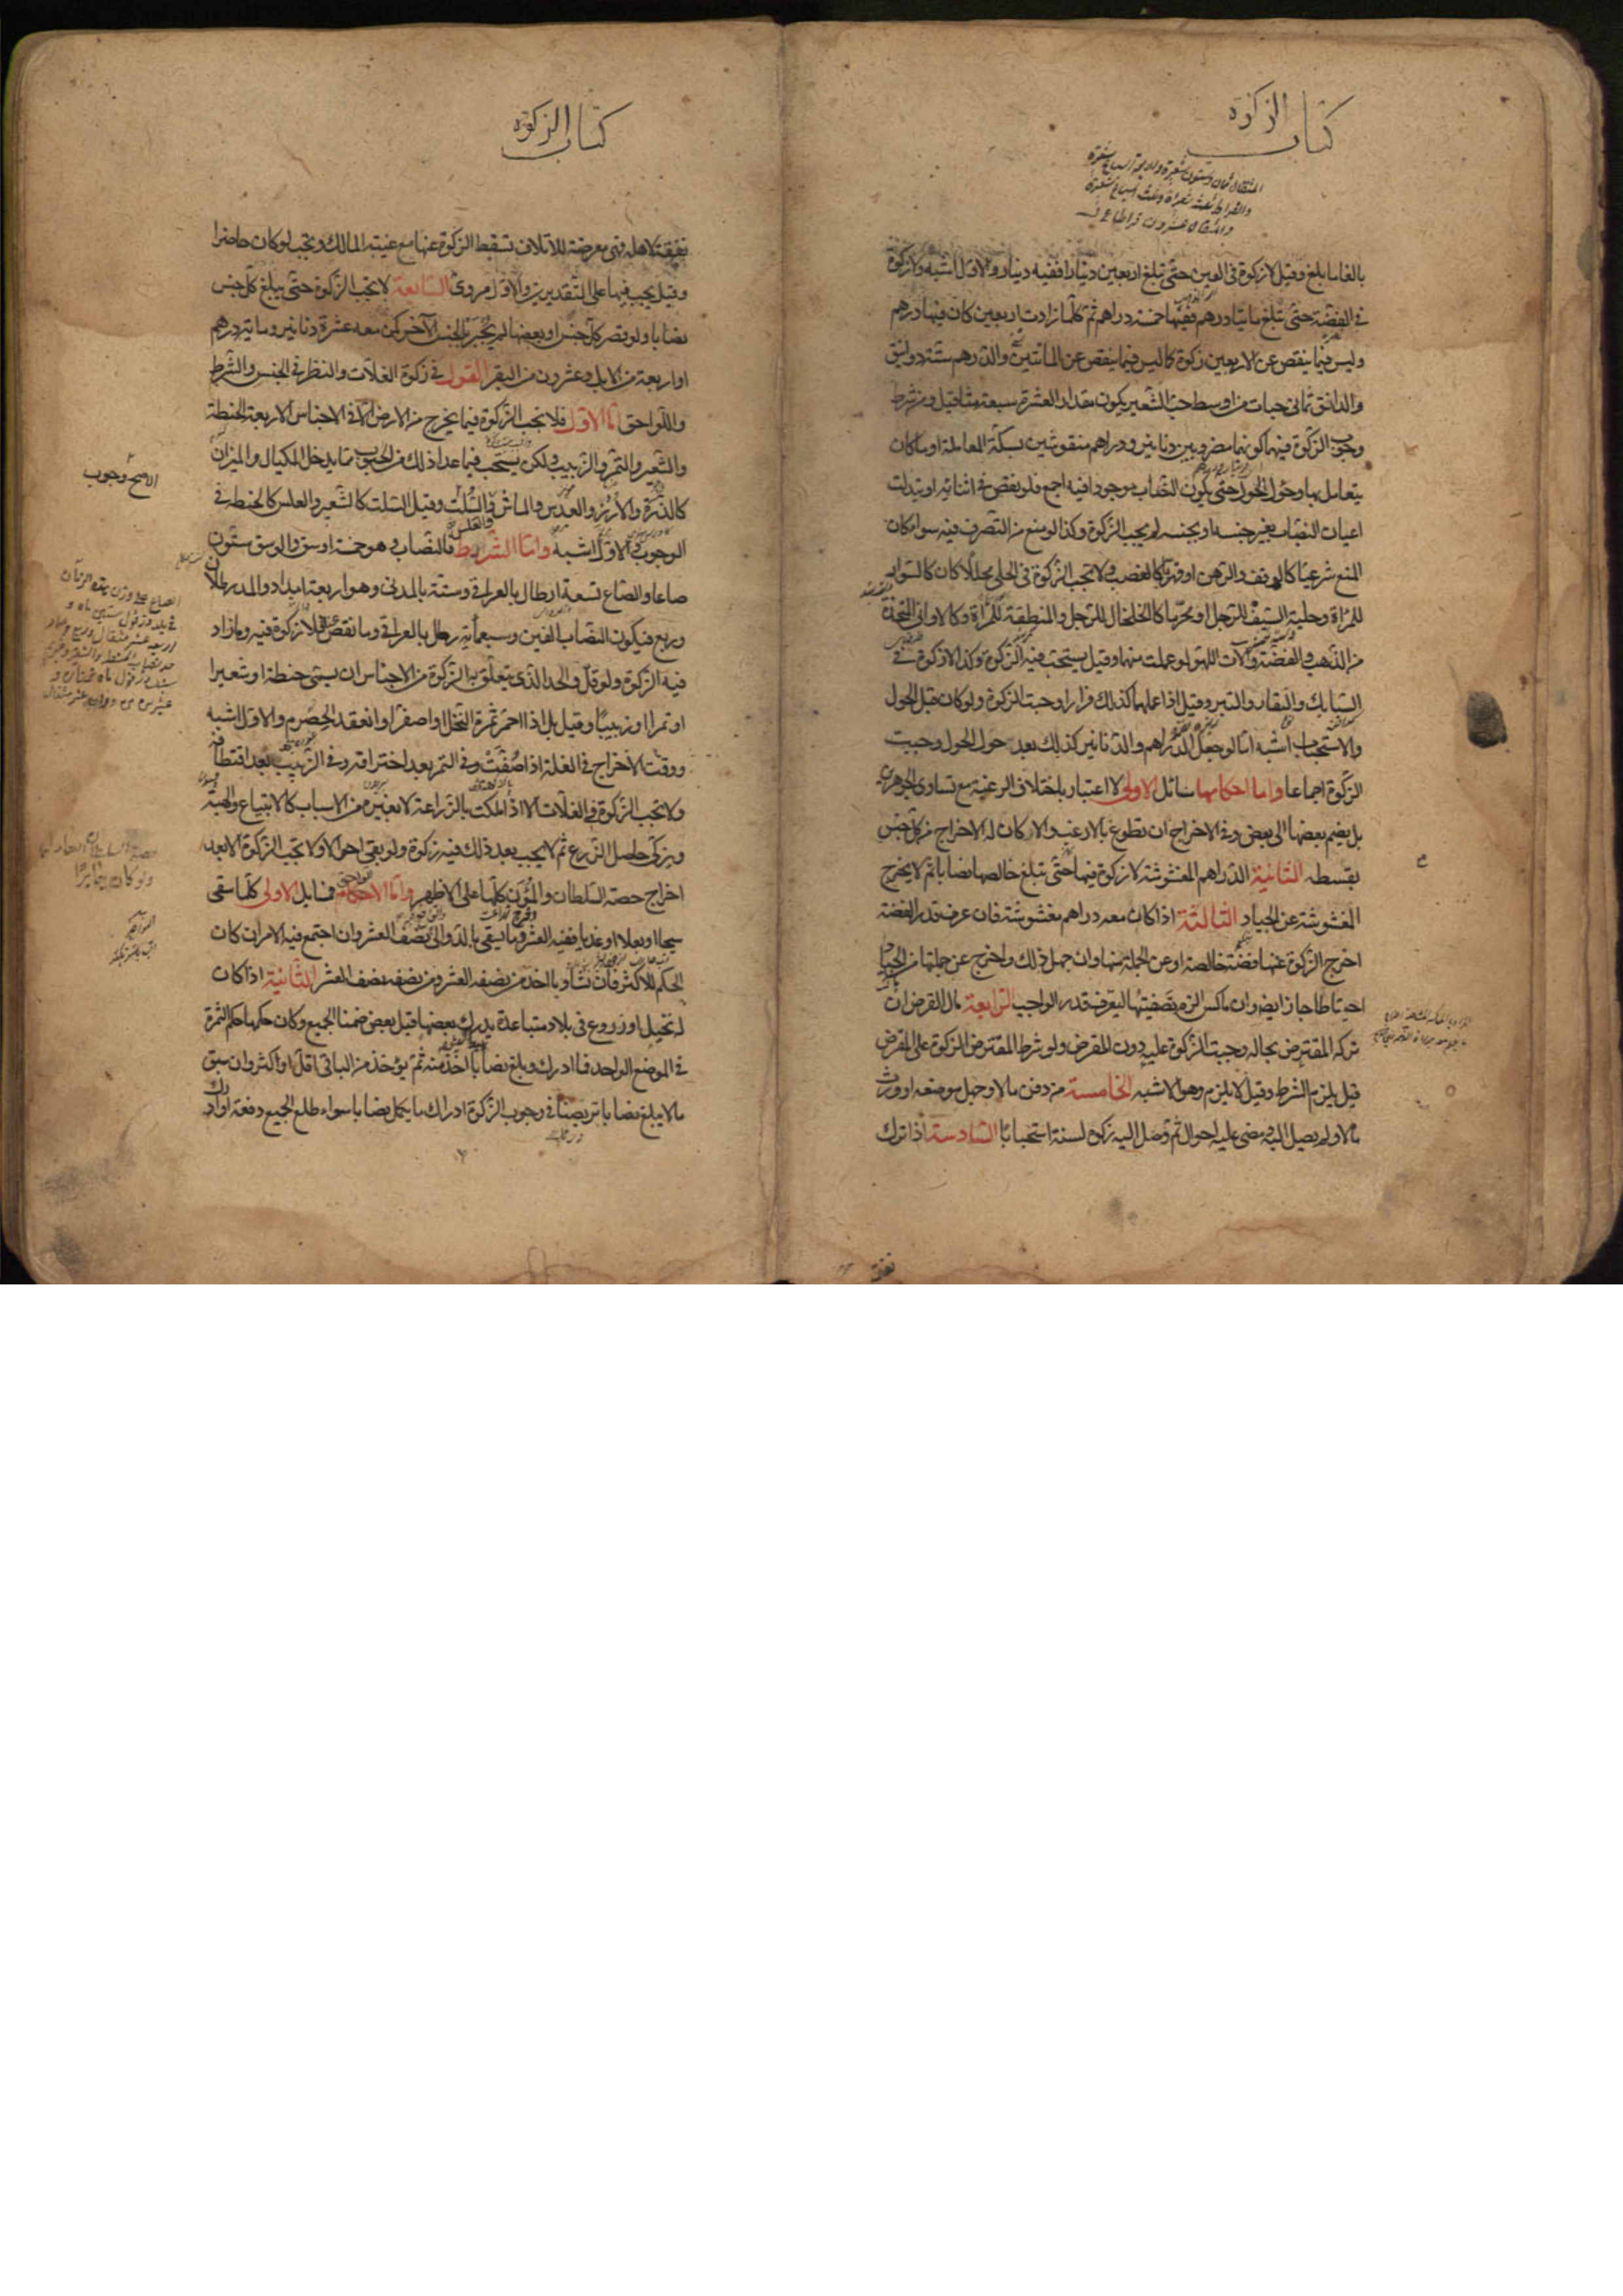 كتاب الزكوة
المثقال ثمان وستون شعيرة واربعة اسباع شعيرة
والقيراط ثلث شعيرة وثلث اسباع شعيرة
والمثقال عشرون قيراطا
بالغا ما بلغ وقيل لا زكوة في العين حتى تبلغ اربعين دينارا ففيه دينار والاول اشبه ولا زكوة
في الفضة حتى تبلغ مايتا درهم ففيها خمسة دراهم ثم كلما زادت اربعين كان فيها درهم
وليس فيما ينقص عن الاربعين زكوة كما ليس فيما ينقص عن المائتين والدرهم ستة دوانيق
والدانق ثماني حبات من اوسط حب الشعير يكون مقدار العشرة سبعة مثاقيل ومن شرط
وجوب الزكوة فيهما كونهما مضروبين دنانير ودراهم منقوشين بسكة المعاملة او ما كان
يتعامل بها وحول الحول حتى يكون النصاب موجودا فيه اجمع فلو نقص في اثنائه او تبدلت
اعيان النصاب بغير جنسه او بجنسه لم يجب الزكوة وكذا لو منع من التصرف فيه سواء كان
المنع شرعيا كالوقف والرهن او قهريا كالغصب ولا تجب الزكوة في الحلي محللا كان كالسوار
للمراة وحلية السيف للرجل او محرما كالخلخال للرجل والمنطقة للمراة وكالاواني المتخذة
من الذهب والفضة والات اللهو لو عملت منهما وقيل يستحب فيه الزكوة وكذا لا زكوة في
السبايك والنقار والتبر وقيل اذا عملهما كذلك فرارا وجبت الزكوة ولو كان قبل الحول
والاستحباب اشبه اما لو جعل الدراهم والدنانير كذلك بعد حول الحول وجبت
الزكوة اجماعا واما احكامها مسائل الاولى لا اعتبار باختلاف الرغبة مع تساوي الجوهرين
بل يضم بعضها الى بعض وفي الاخراج ان تطوع بالارغب والا كان له الاخراج من كل جنس
بقسطه الثانية الدراهم المغشوشة لا زكوة فيها حتى تبلغ خالصها نصابا ثم لا يخرج
المغشوشة عن الجياد الثالثة اذا كان معه دراهم مغشوشة فان عرف قدر الفضة
اخرج الزكوة عنها فضة خالصة او عن الجملة منها وان جهل ذلك واخرج عن جملتها من الجياد
احتياطا جاز ايضا وان ماكس الزم تصفيتها ليعرف قدر الواجب الرابعة مال القرض ان
تركه المقترض بحاله وجبت الزكوة عليه دون المقرض ولو شرط المقترض الزكوة على المقرض
قيل يلزم الشرط وقيل لا يلزم وهو الاشبه الخامسة من دفن مالا وجهل موضعه او ورث
مالا ولم يصل اليه ومضى عليه احوال ثم وصل اليه زكوة لسنة استحبابا السادسة اذا ترك
نفقة
كتاب الزكوة
نفقة لاهله فهي معرضة للاتلاف تسقط الزكوة عنها مع غيبته المالك وتجب لو كان حاضرا
وقيل يجب فيها على التقديرين والاول مروي السابعة لا تجب الزكوة حتى يبلغ كل جنس
نصابا ولو قصر كل جنس او بعضها لم يجبر بالجنس الآخر كمن معه عشرة دنانير ومايتة درهم
او اربعة من الابل وعشرون من البقر القول في زكوة الغلات والنظر في الجنس والشرط
واللواحق اما الاول فلا تجب الزكوة فيما يخرج من الارض الا في الاجناس الاربعة الحنطة
والشعير والتمر والزبيب ولكن يستحب فيما عدا ذلك من الحبوب مما يدخل المكيال والميزان
كالذرة والارز والعدس والماش في السلت وقيل السلت كالشعير والعلس كالحنطة في
والعلس
الوجوب والاول اشبه واما الشرايط فالنصاب وهو خمسة اوسق والوسق ستون
صاعا والصاع تسعة ارطال بالعراقي وستة بالمدني وهو اربعة امداد والمد رطلان
وربع فيكون النصاب الفين وسبعمائة رطل بالعراقي وما نقص فلا زكوة فيه وما زاد
فيه الزكوة ولو قل والحد الذي يتعلق به الزكوة من الاجناس ان يسمى حنطة او شعيرا
او تمرا او زبيبا وقيل بل اذا احمر ثمرة النخل او اصفر او انعقد الحصرم والاول اشبه
ووقت الاخراج في الغلة اذا صفت وفي التمر بعد اخترافه وفي الزبيب بعد اقتطافه
ولا تجب الزكوة في الغلات الا اذا ملكت بالزراعة لا بغيره من الاسباب كالابتياع والهبة
ويزكي حاصل الزرع ثم لا يجب بعد ذلك فيه زكوة ولو بقي احوالا ولا تجب الزكوة الا بعد
اخراج حصة السلطان والمؤن كلها على الاظهر واما الاحكام فمسايل الاولى كلما سقي
سيحا او بعلا او عذيا ففيه العشر وما يسقى بالدوالي نصف العشر وان اجتمع فيه الامران كان
الحكم للاكثر فان تساويا اخذ من نصفه العشر ومن نصفه نصف العشر الثانية اذا كان
له نخيل او زروع في بلاد متباعدة يدرك بعضها قبل بعض ضمنا الجميع وكان حكمها حكم الثمرة
في الموضع الواحد فما ادرك وبلغ نصابا اخذ منه ثم يؤخذ من الباقي اقل او اكثر وان سبق
ما لا يبلغ نصابا تربصنا في وجوب الزكوة ادراك ما يكمل نصابا سواء طلع الجميع دفعة او ادرك
الاصح وجوب
ولو كان جايرا